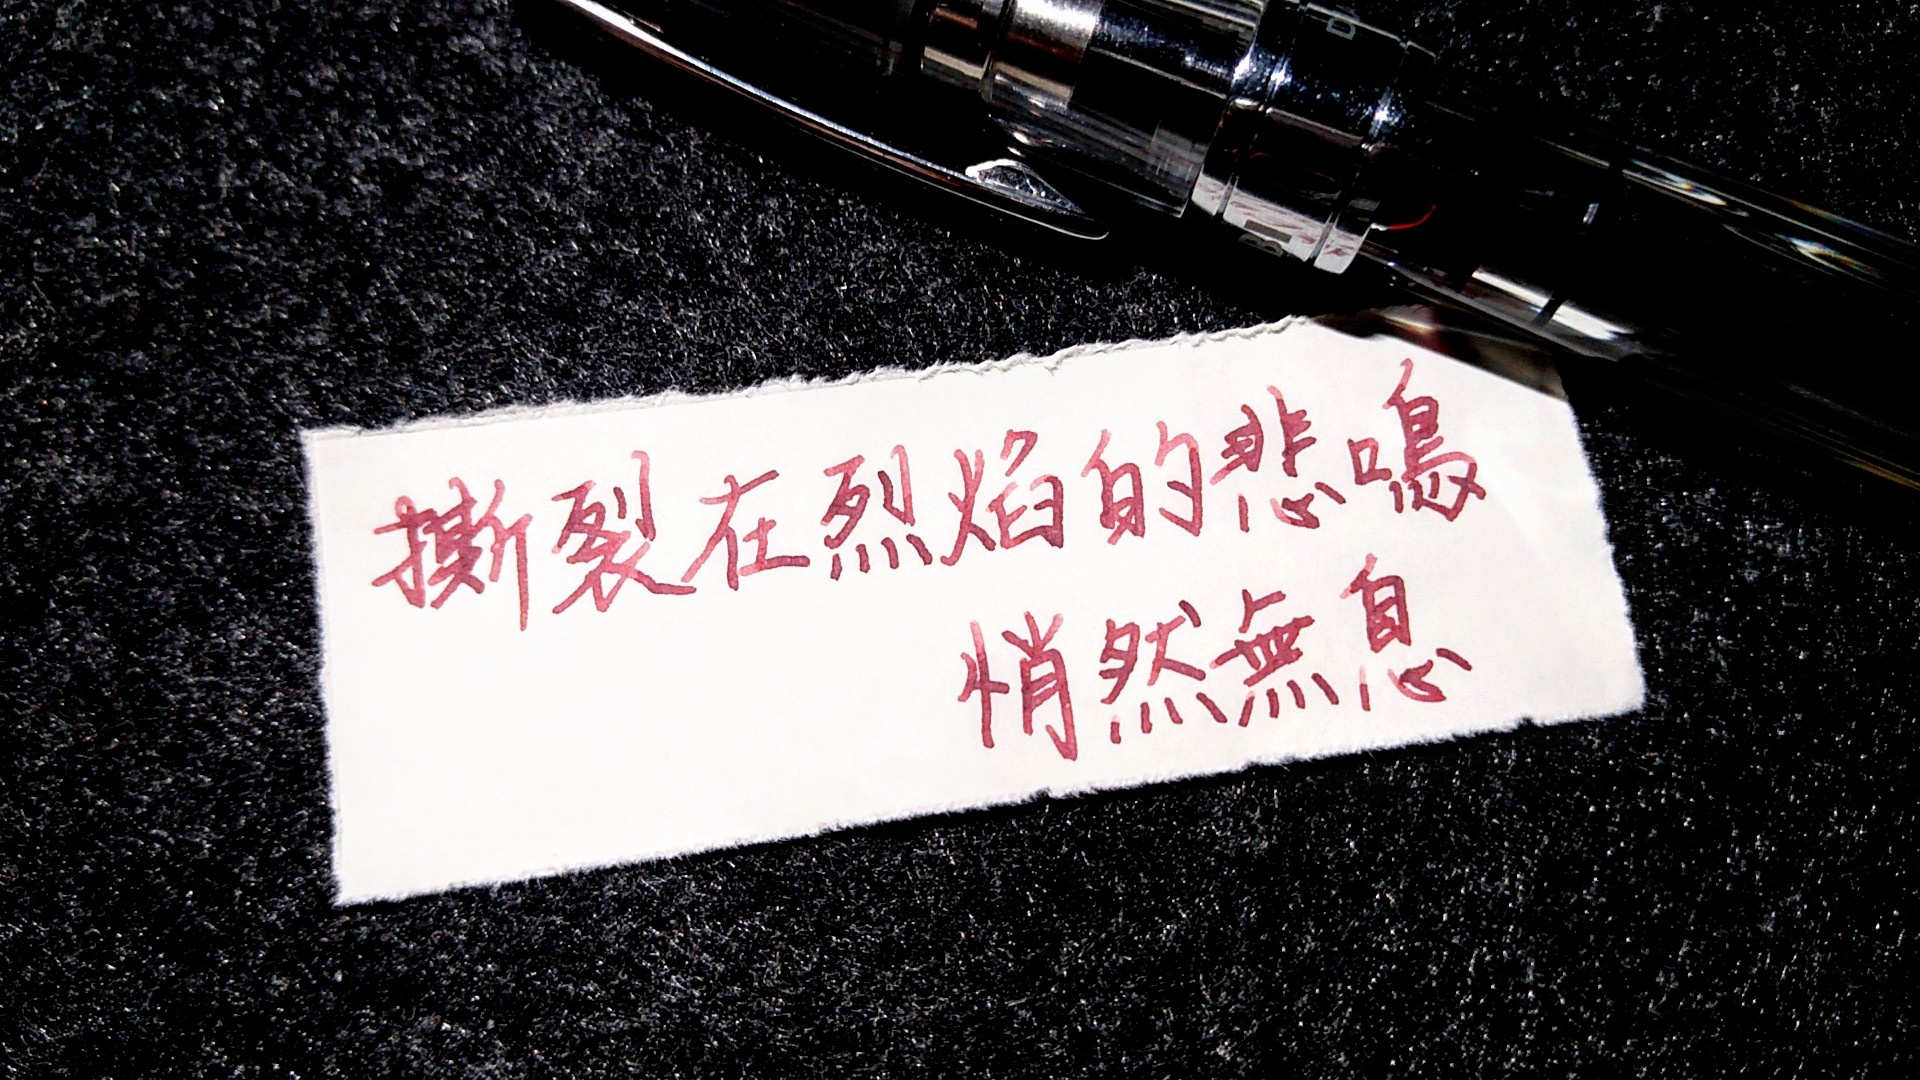 撕裂在烈焰的悲鳴
悄然無息